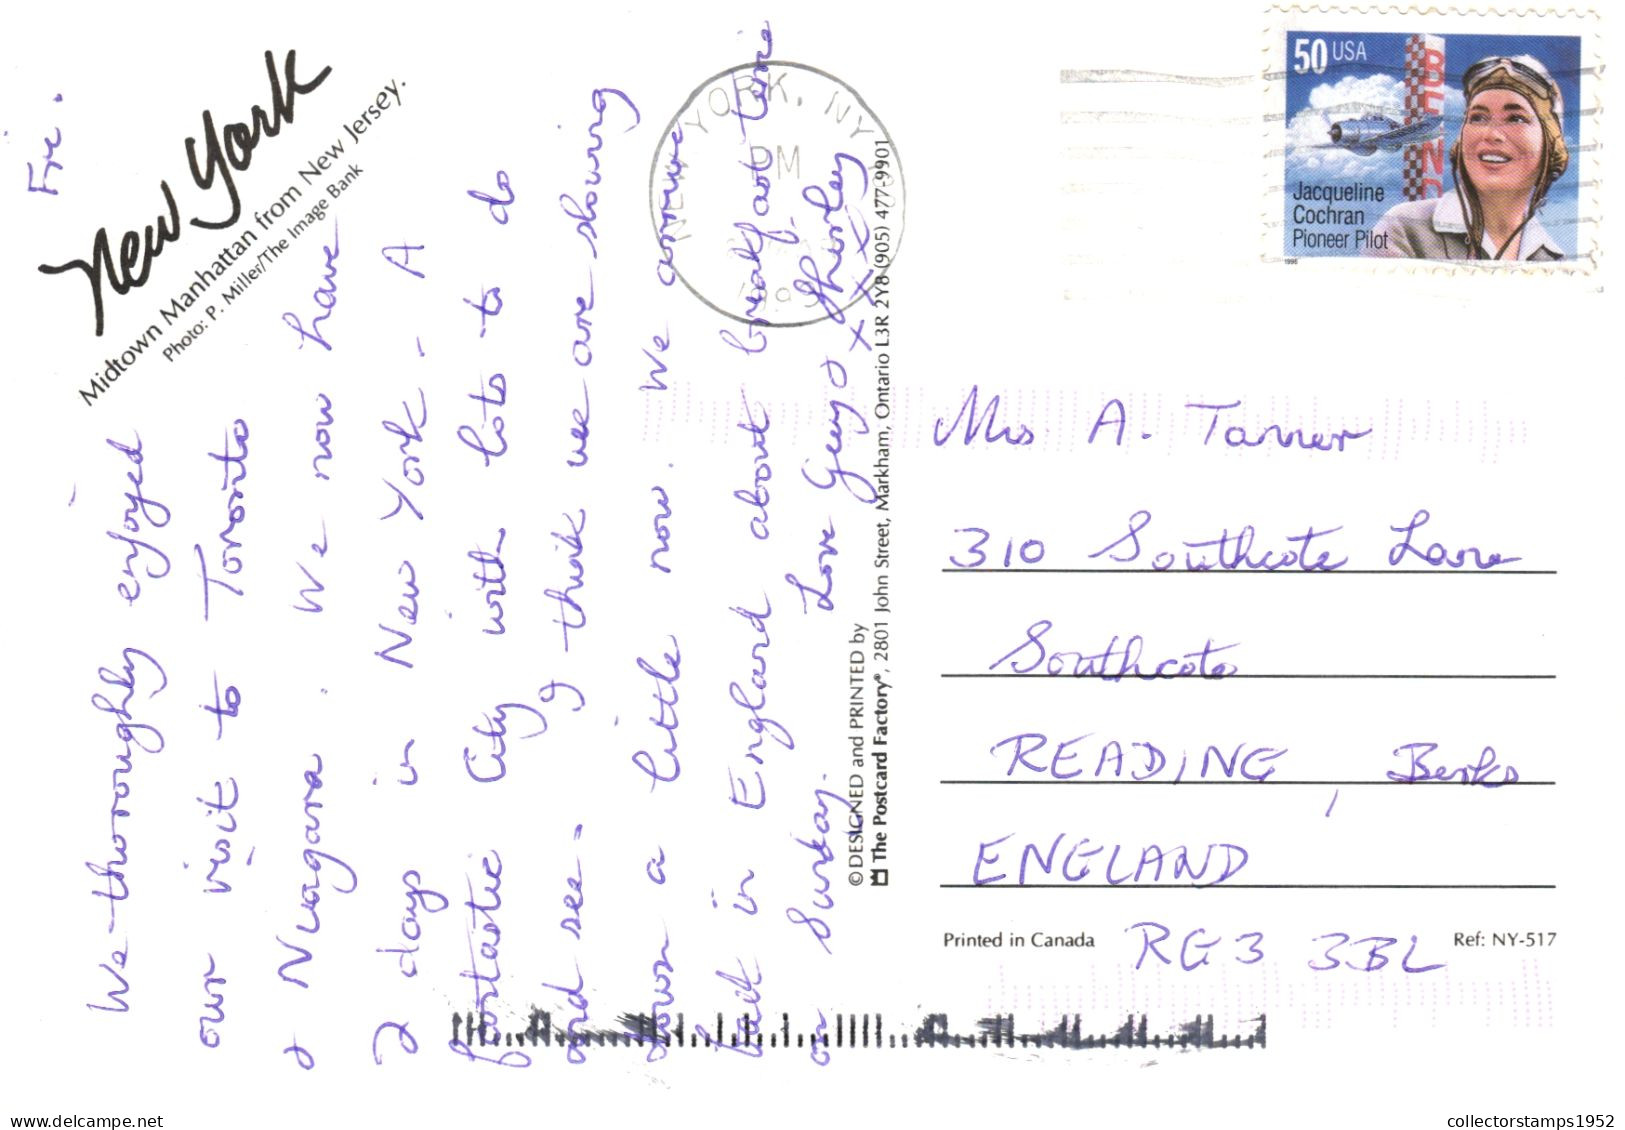 Fri.
New York
Midtown Manhattan from New Jersey.
Photo: P. Miller/The Image Bank
We thoroughly enjoyed
our visit to Toronto
& Niagara. We now have
2 days in New York. A
fantastic City with lots to do
and see. I think we are slowing
down a little now. We arrive
back in England about breakfast time
on Sunday. Love Gerry & Shirley
x x x x
NEW YORK, NY
PM
50 USA
BEND
Jacqueline
Cochran
Pioneer Pilot
1996
© DESIGNED and PRINTED by
The Postcard Factory®, 2801 John Street, Markham, Ontario L3R 2Y8 (905) 477-9901
Mrs A. Tanner
310 Southcote Lane
Southcote
READING, Berks
ENGLAND
RG3 3BL
Printed in Canada
Ref: NY-517
delcampe.net
collectorstamps1952